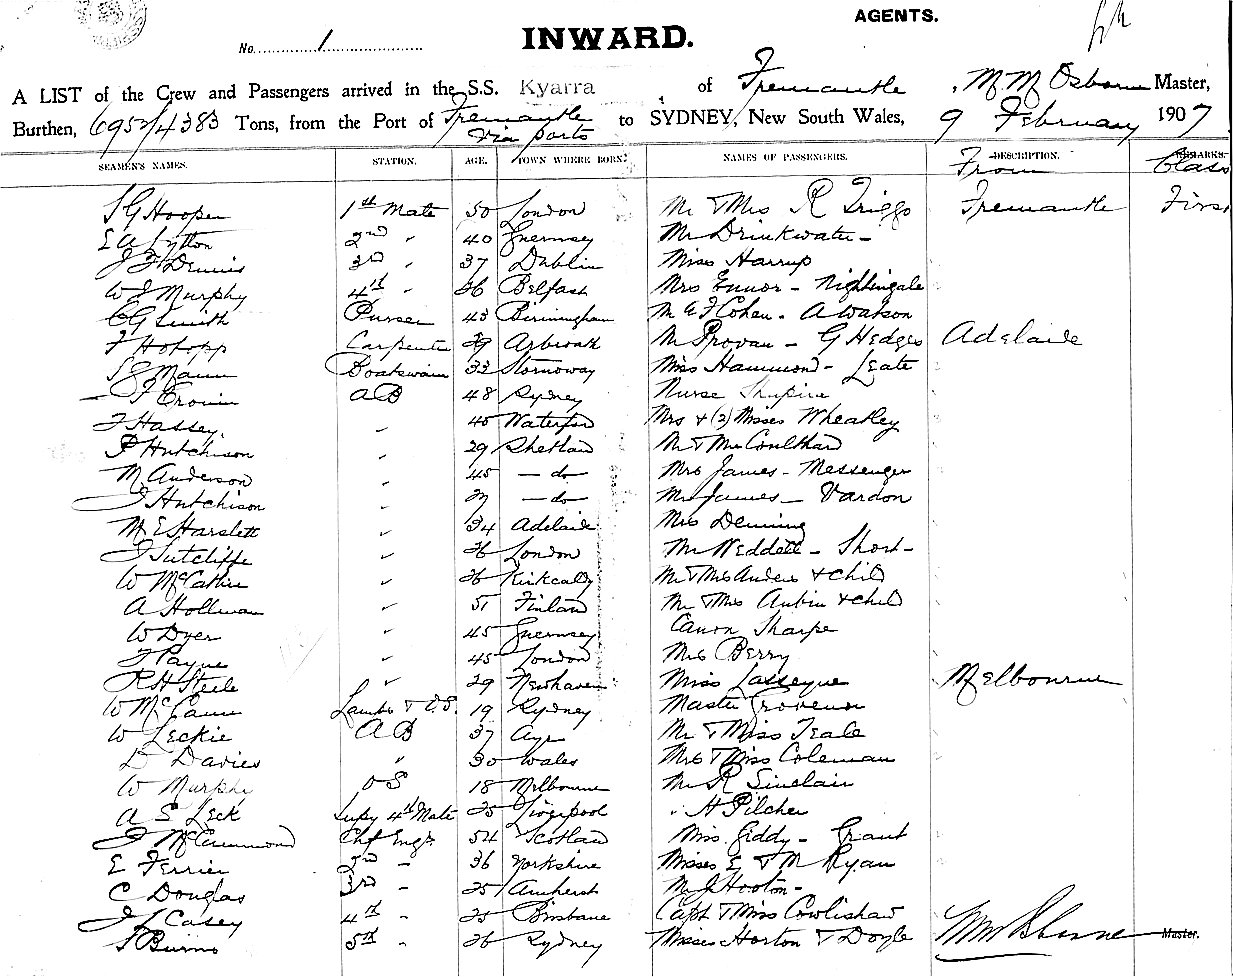 AGENTS.
No. 1
INWARD.
A LIST of the Crew and Passengers arrived in the S.S. Kyarra of Fremantle, M M Osborne Master,
Burthen, 6952/4383 Tons, from the Port of Fremantle via ports to SYDNEY, New South Wales, 9 February 1907
SEAMEN'S NAMES. STATION. AGE. TOWN WHERE BORN. NAMES OF PASSENGERS. DESCRIPTION. From REMARKS. Class
S G Hooper 1st Mate 50 London Mr & Mrs R Triggs Fremantle First
E A Lytton 2nd " 40 Guernsey Mr Drinkwater -
J F Dennis 3rd " 37 Dublin Miss Harrup
W J Murphy 4th " 26 Belfast Mrs Ennor - Nightingale
C G Smith Purser 43 Birmingham M & F Cohen - A Watson
F Hohopp Carpenter 39 Arbroath Mr Provan - G Hedges Adelaide
Mann Boatswain 33 Stornoway Miss Hammond - Leate
Cronin AB 48 Sydney Nurse Shapira
Hassey " 45 Waterford Mrs & (2) Misses Wheatley
P Hutchison " 29 Shetland Mr & Mrs Coulthard
M Anderson " 45 - do Mrs James - Messenger
J Hutchison " - do Mr James - Vardon
M E Harslett " 34 Adelaide Mrs Denning
J Sutcliffe " 26 London Mr Weddell - Short -
W McCathie " 26 Kirkcaldy Mr & Mrs Anders & child
A Hollman " 51 Finland Mr & Mrs Aubin & child
W Dyer " 45 Guernsey Canon Sharpe
Payne " 45 London Mrs Berry
R H Steele " 29 Newhaven Miss Lasseque Melbourne
W McCann Lamps & O.S. 19 Sydney Master Grovenor
W Leckie AB 37 Ayr Mr & Miss Teale
D Davies " 30 Wales Mrs & Miss Coleman
W Murphy OS 18 Melbourne Mr R Sinclair
A S Leck Supy 4th Mate 25 Liverpool " H Pilcher
J McCrummond Chf Engr 54 Scotland Miss Giddy - Grant
E Ferrier 2nd " 36 Yorkshire Misses E & M Ryan
C Douglas 3rd " 25 Amherst Mr J Hooton -
J J Casey 4th " 25 Brisbane Capt & Miss Cowlishaw
Burns 5th " 26 Sydney Misses Horton & Doyle M M Osborne Master.